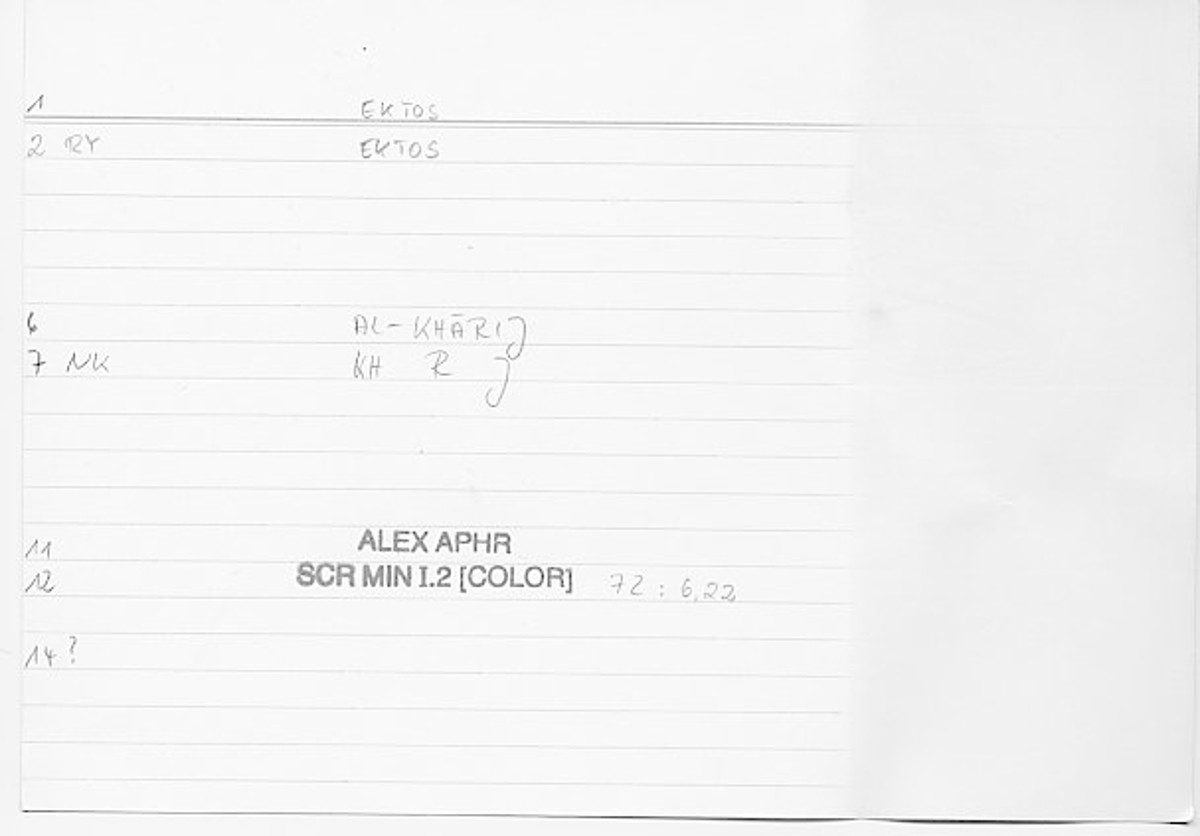 1 EKTOS
2 RY EKTOS
6 AL-KHĀRIJ
7 NK KH R J
11 ALEX APHR
12 SCR MIN I.2 [COLOR] 72 : 6,22
14?